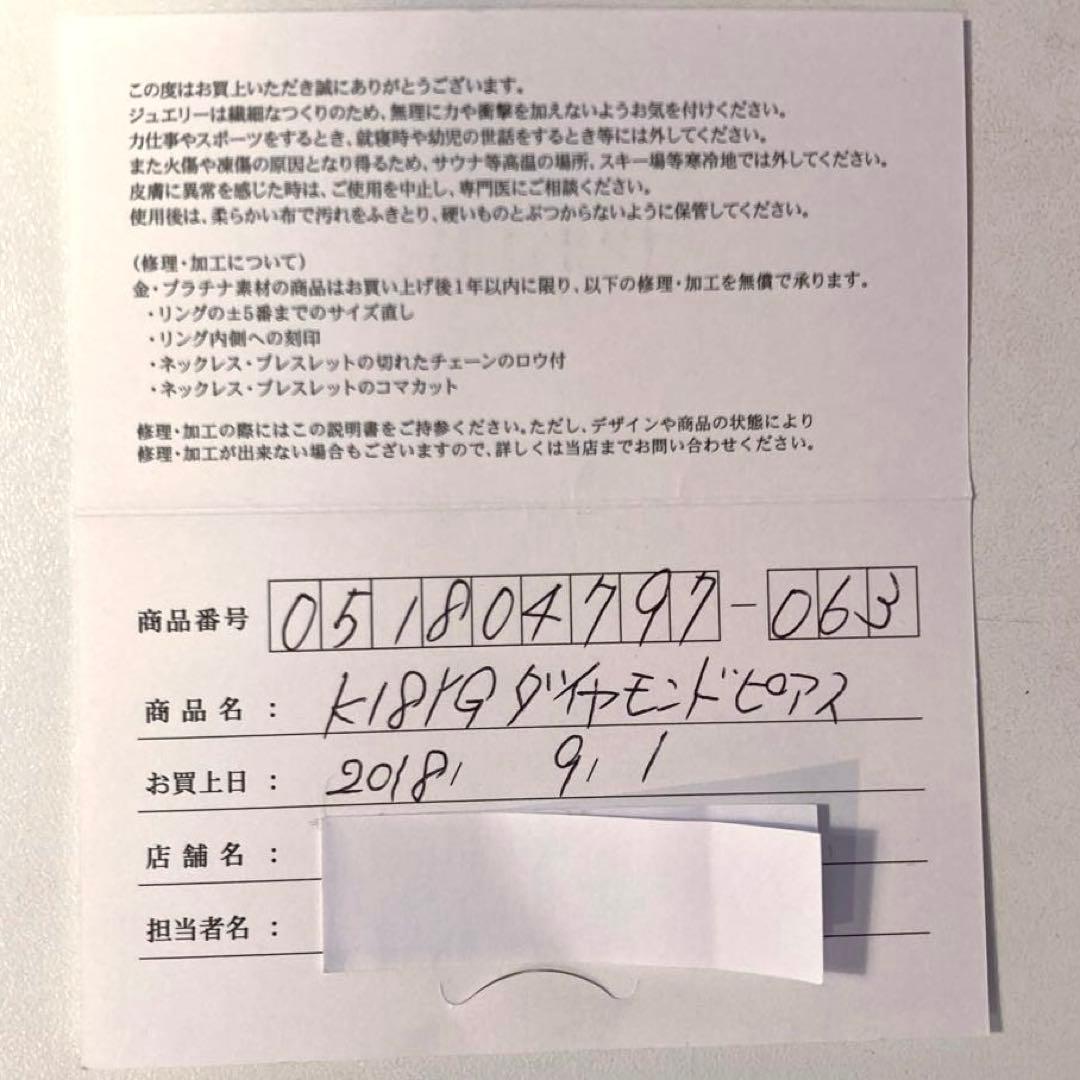 この度はお買上いただき誠にありがとうございます。
ジュエリーは繊細なつくりのため、無理に力や衝撃を加えないようお気を付けください。
力仕事やスポーツをするとき、就寝時や幼児の世話をするとき等には外してください。
また火傷や凍傷の原因となり得るため、サウナ等高温の場所、スキー場等寒冷地では外してください。
皮膚に異常を感じた時は、ご使用を中止し、専門医にご相談ください。
使用後は、柔らかい布で汚れをふきとり、硬いものとぶつからないように保管してください。
(修理・加工について)
金・プラチナ素材の商品はお買い上げ後1年以内に限り、以下の修理・加工を無償で承ります。
・リングの±5番までのサイズ直し
・リング内側への刻印
・ネックレス・ブレスレットの切れたチェーンのロウ付
・ネックレス・ブレスレットのコマカット
修理・加工の際にはこの説明書をご持参ください。ただし、デザインや商品の状態により
修理・加工が出来ない場合もございますので、詳しくは当店までお問い合わせください。
商品番号 051804797-063
商品名： K18YGダイヤモンドピアス
お買上日： 2018, 9, 1
店舗名：
担当者名：